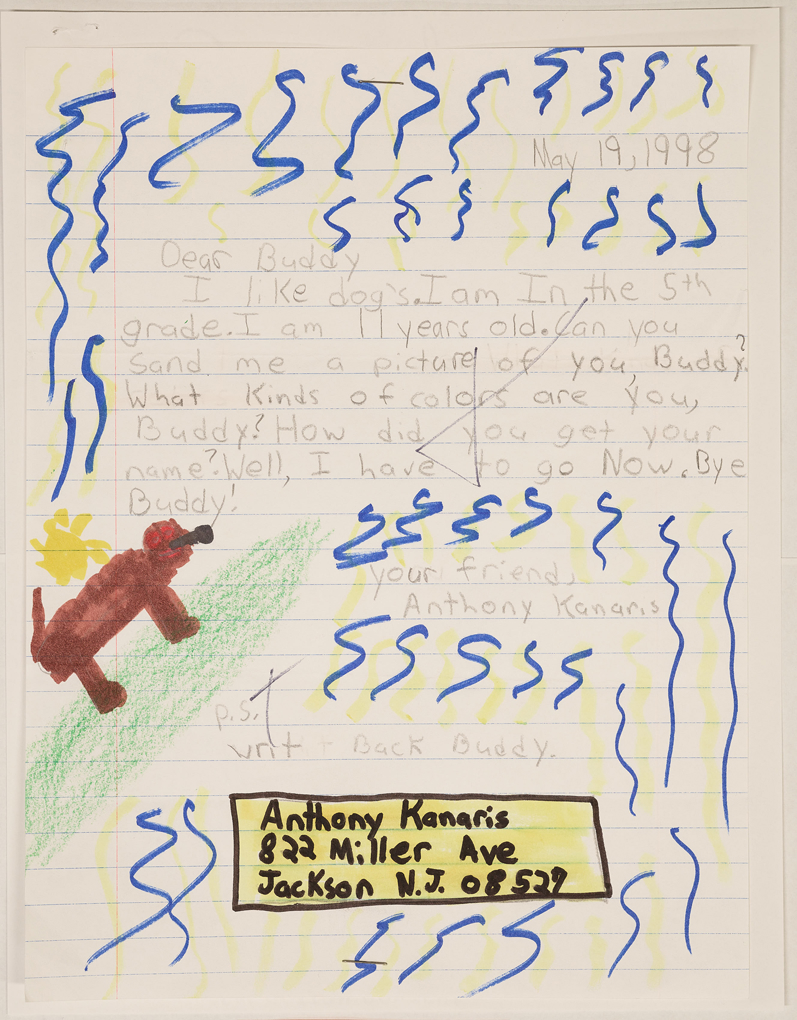 May 19, 1998
Dear Buddy
I like dog's. I am In the 5th
grade. I am 11 years old. Can you
Sand me a picture of you, Buddy?
What Kinds of colors are you,
Buddy? How did you get your
name? Well, I have to go Now. Bye
Buddy!
your friend,
Anthony Kanaris
p.s.
writ Back Buddy.
Anthony Kanaris
822 Miller Ave
Jackson N.J. 08527